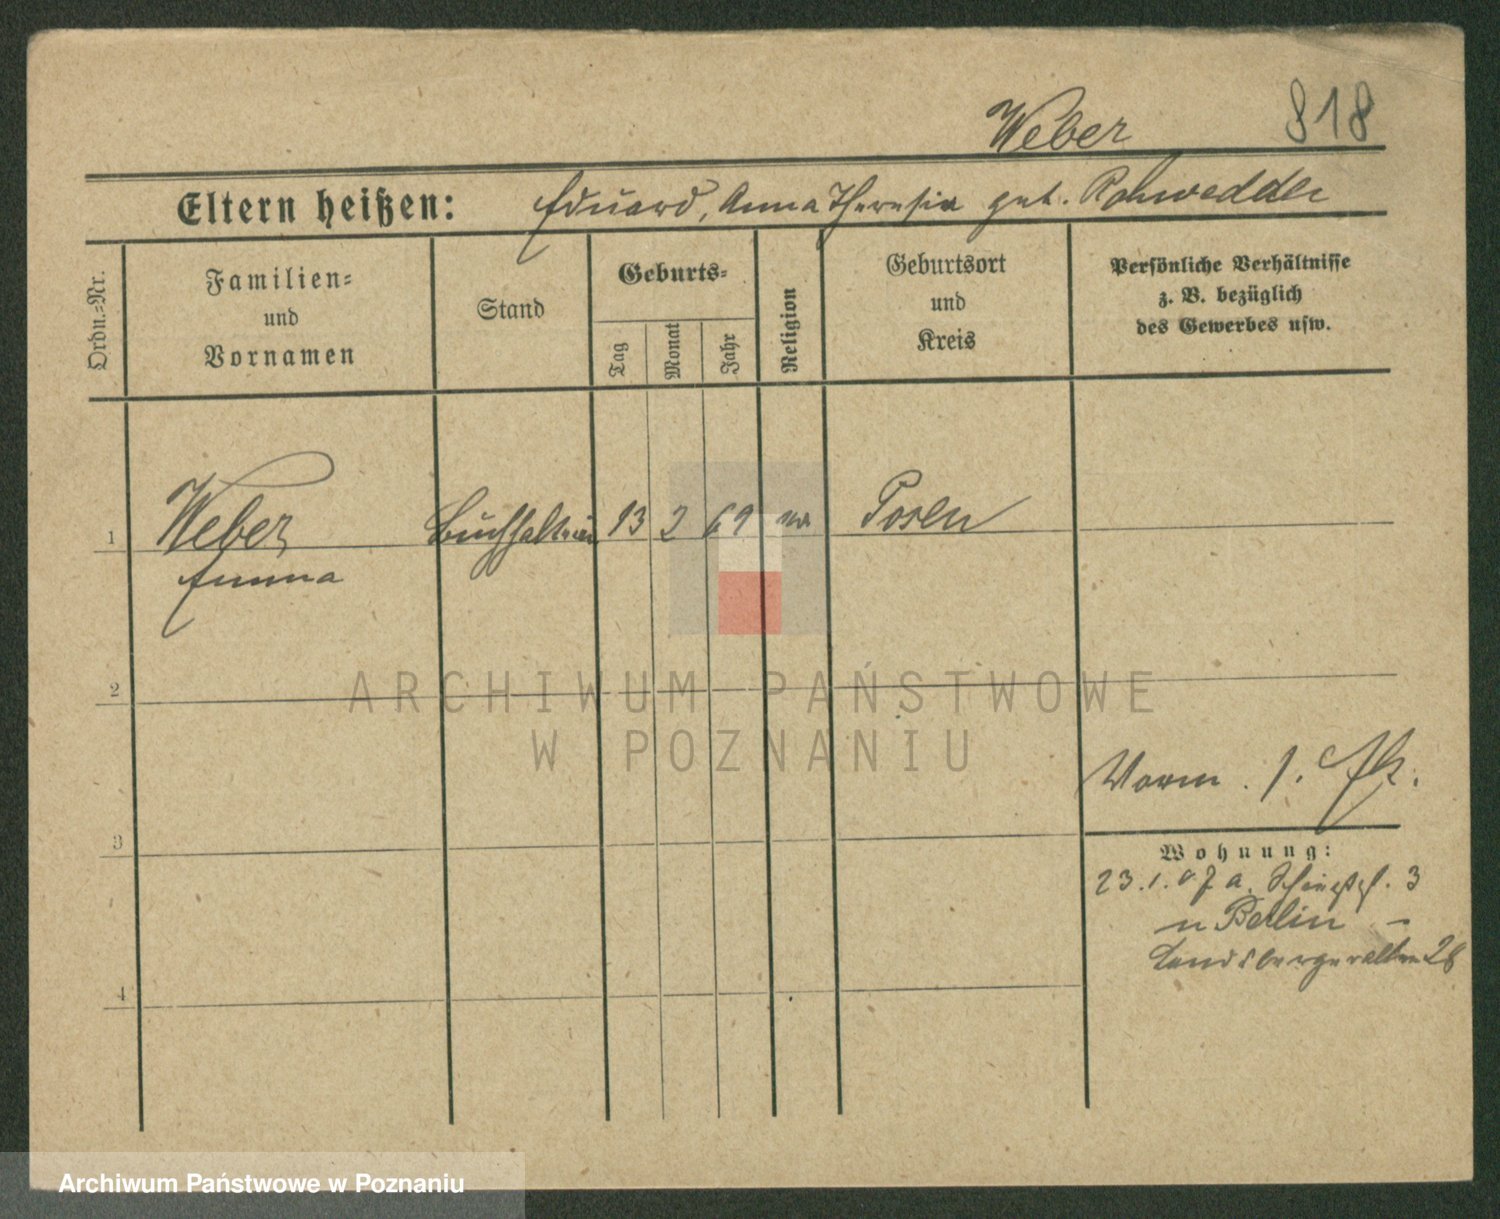 Weber 818
Eltern heißen: Eduard, Anna Theresia geb. Rohwedder
Ordn.=Nr.
Familien=
und
Vornamen
Stand
Geburts=
Tag
Monat
Jahr
Religion
Geburtsort
und
Kreis
Persönliche Verhältnisse
z. B. bezüglich
des Gewerbes usw.
1 Weber Buchhalterin 13 2 69 Posen
Emma
2
ARCHIWUM PAŃSTWOWE
W POZNANIU
Vorm. 1.
3
Wohnung:
23.1.07 a. 3
n Berlin –
Landsbergerallee 28
4
Archiwum Państwowe w Poznaniu